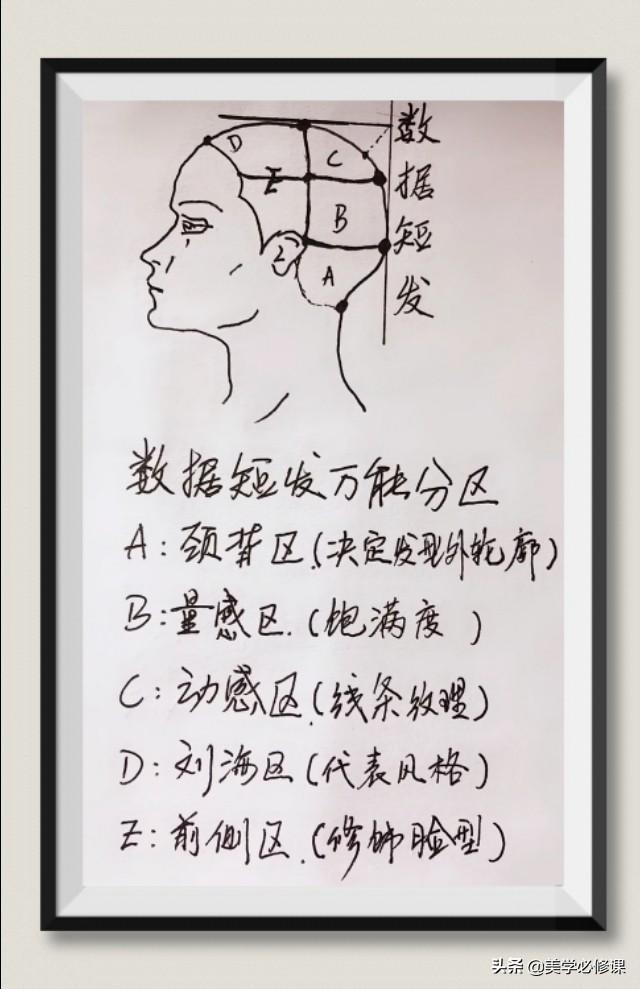 数据短发
D
C
E
B
A
数据短发万能分区
A：颈背区(决定发型外轮廓)
B：量感区.(饱满度)
C：动感区(线条纹理)
D：刘海区(代表风格)
E：前侧区.(修饰脸型)
头条 @美学必修课